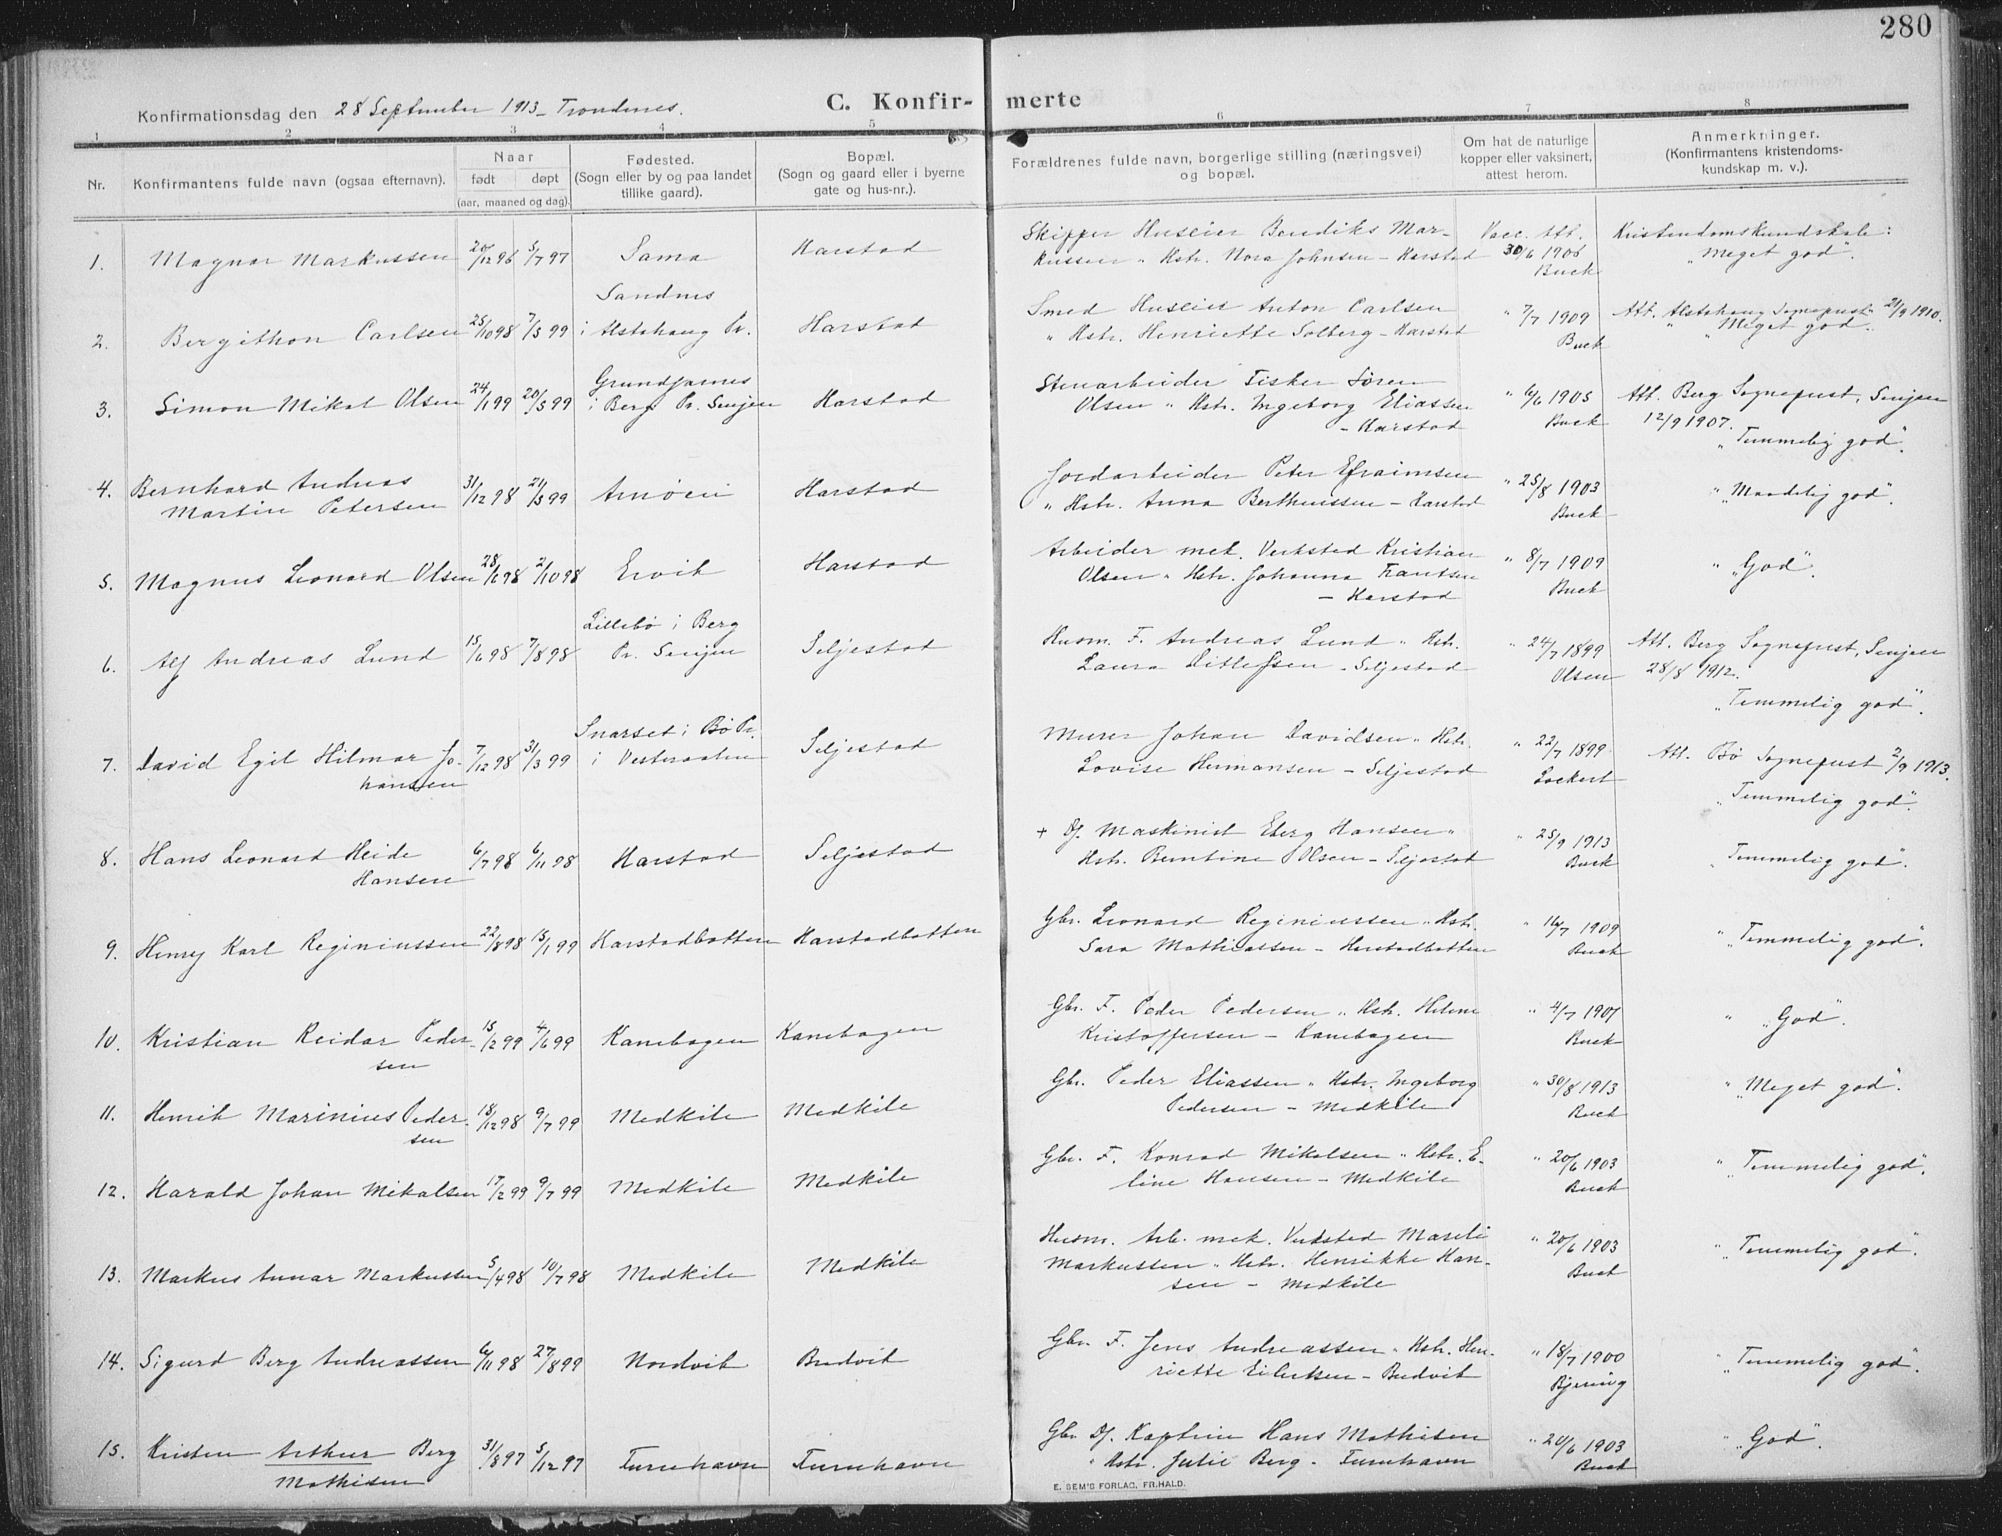 280
Konfirmationsdag den 28 September 1913 - Trondenes.
C. Konfirmerte
1 2 3 4 5 6 7 8
Nr.
Konfirmantens fulde navn (ogsaa efternavn).
Naar
født døpt
(aar, maaned og dag).
Fødested.
(Sogn eller by og paa landet
tillike gaard).
Bopæl.
(Sogn og gaard eller i byerne
gate og hus-nr.).
Forældrenes fulde navn, borgerlige stilling (næringsvei)
og bopæl.
Om hat de naturlige
kopper eller vaksinert,
attest herom.
Anmerkninger.
(Konfirmantens kristendoms-
kundskap m. v.).
1. Magnar Markussen 20/12 96 5/7 97 Sama Harstad
Skipper Huseier Bendiks Mar-
kussen " Hstr. Nora Johnsen - Harstad
Vacc. Att.
30/6 1906
Buck
Kristendomskundskab:
"Meget god".
2. Bergithon Carlsen 25/10 98 7/5 99
Sandnes
i Alstahaug Pr.
Harstad
Smed Huseier Anton Carlsen
" Hstr. Henriette Solberg - Harstad
" 7/7 1909
Buck
Att. Alstahaug Sognepræst 21/9 1910.
" "Meget god".
3. Simon Mikal Olsen 24/1 99 20/5 99
i Berg Pr. Senjen
Harstad
Stenarbeider Fisker Sören
Olsen " Hstr. Ingeborg Eliassen
- Harstad
" 6/6 1905
Buck
Att. Berg Sognepræst, Senjen
12/9 1907.
"Temmelig god".
4. Bernhard Andreas
Martin Petersen
31/12 98 21/5 99 Arnöen Harstad
Jordarbeider Peter Efraimsen
" Hstr. Anna Bertheussen - Harstad
" 25/8 1903
Buck
" "Maadelig god".
5. Magnus Leonard Olsen 2/10 98 Ervik Harstad
Arbeider mek. Verksted Kristian
Olsen " Hstr. Johanna Frantsen
- Harstad
" 8/7 1909
Buck
" "God".
6. Alf Andreas Lund 15/6 98 7/8 98
Lillebö i Berg
Pr. Senjen
Seljestad
Husm. F. Andreas Lund " Hstr.
Laura Ditlefsen - Seljestad
" 24/7 1899
Olsen
Att. Berg Sognepræst, Senjen
28/8 1912.
"Temmelig god".
7. David Egil Hilmar Jo-
hansen
7/12 98 31/3 99
Snarset i Bö Pr.
i Vesteraalen
Seljestad
Murer Johan Davidsen " Hstr.
Lovise Hermansen - Seljestad
" 22/7 1899
Lockert
Att. Bö Sognepræst 2/9 1913.
"Temmelig god".
8. Hans Leonard Heide
Hansen
6/7 98 6/11 98 Harstad Seljestad
+ Df. Maskinist Eberg Hansen "
Hstr. Berntine Olsen - Seljestad
" 25/9 1913
Buck
"Temmelig god".
9. Henry Karl Reginiussen 22/8 98 15/1 99 Harstadbotten Harstadbotten
Gbr. Leonard Reginiussen " Hstr.
Sara Mathiassen - Harstadbotten
" 16/7 1909
Buck
" "Temmelig god".
10. Kristian Reidar Peder-
sen
15/2 99 4/6 99 Kanebogen Kanebogen
Gbr. F. Peder Pedersen " Hstr. Helene
Kristoffersen - Kanebogen
" 4/7 1907
Buck
" "God".
11. Henrik Marinius Peder-
sen
18/12 98 9/7 99 Medkile Medkile
Gbr. Peder Eliassen " Hstr. Ingeborg
Pedersen - Medkile
" 30/8 1913
Buck
" "Meget god".
12. Harald Johan Mikalsen 17/2 99 9/7 99 Medkile Medkile
Gbr. F. Konrad Mikalsen " Hstr. E-
line Hansen - Medkile
" 20/6 1903
Buck
" "Temmelig god".
13. Markus Annar Markussen 5/4 98 10/7 98 Medkile Medkile
Husm. Arb. mek. Verksted Mareli
Markussen " Hstr. Henrikke Han-
sen - Medkile
" 20/6 1903
Buck
" "Temmelig god".
14. Sigurd Berg Andreassen 6/11 98 27/8 99 Nordvik Budvik
Gbr. F. Jens Andreassen " Hstr. Hen-
riette Eilertsen - Budvik
" 18/7 1900
Bjering
" "Temmelig god".
15. Kristen Arthur Berg
Mathisen
31/8 97 5/12 97 Furuhavn Furuhavn
Gbr. Df. Kaptein Hans Mathisen
" Hstr. Julie Berg - Furuhavn
" 20/6 1903
Buck
" "God".
E. SEM'S FORLAG, FR.HALD.